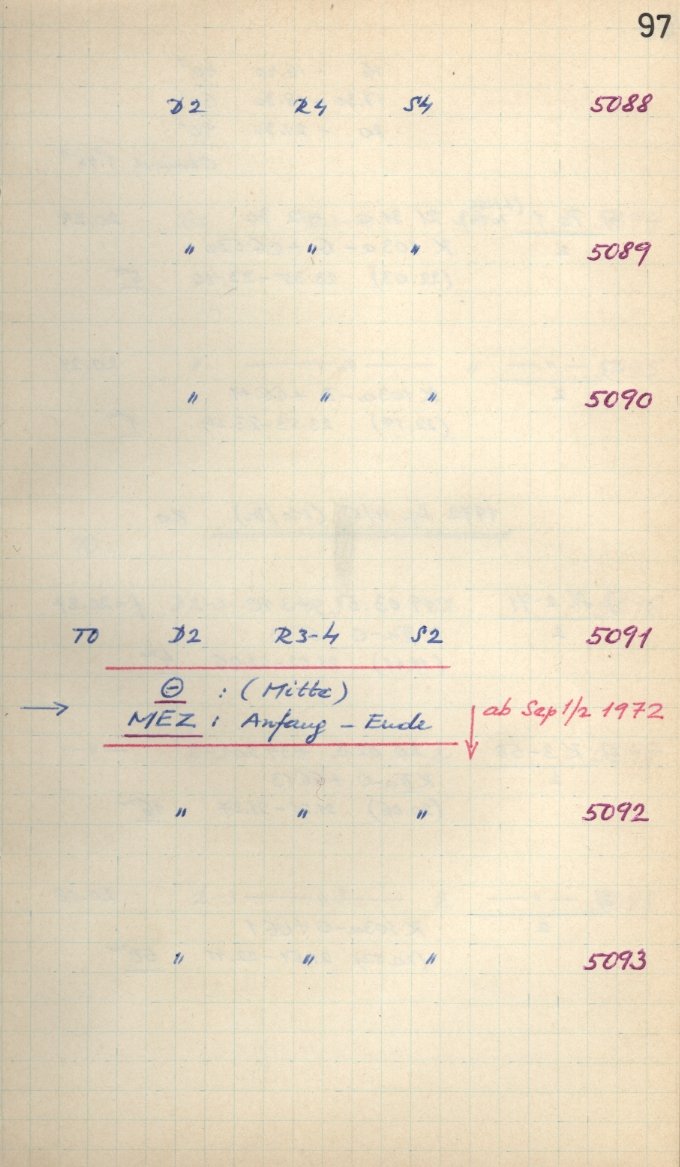 97
D2 R4 S4 5088
" " " 5089
" " " 5090
TO D2 R3-4 S2 5091
Θ : (Mitte)
→ MEZ : Anfang - Ende ↓ ab Sep 1/2 1972
" " " 5092
" " " 5093